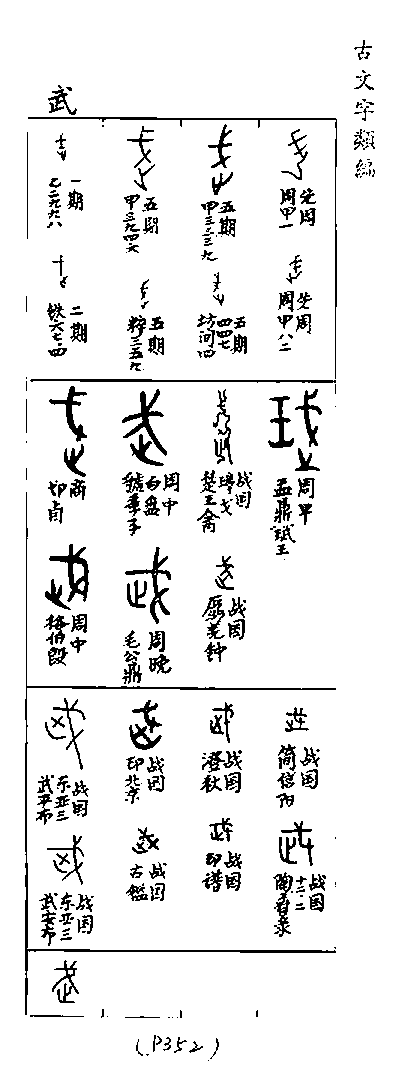 古文字類編
武
一期
乙二九九八
五期
甲三九四六
五期
甲三三三九
先周
周甲一
二期
铁六七四
五期
粹三五九
五期
四四七
坊间四
先周
周甲八二
商
切卣
周中
虢季子
白盘
战国
楚王禽
周早
盂鼎珷王
周中
格伯𣪘
周晚
毛公鼎
战国
屭羌钟
战国
东亚三
武平布
战国
印北京
战国
澂秋
战国
简信阳
战国
东亚三
武安布
战国
古鑑
战国
印谱
战国
陶舂录
十二·二
(P352)